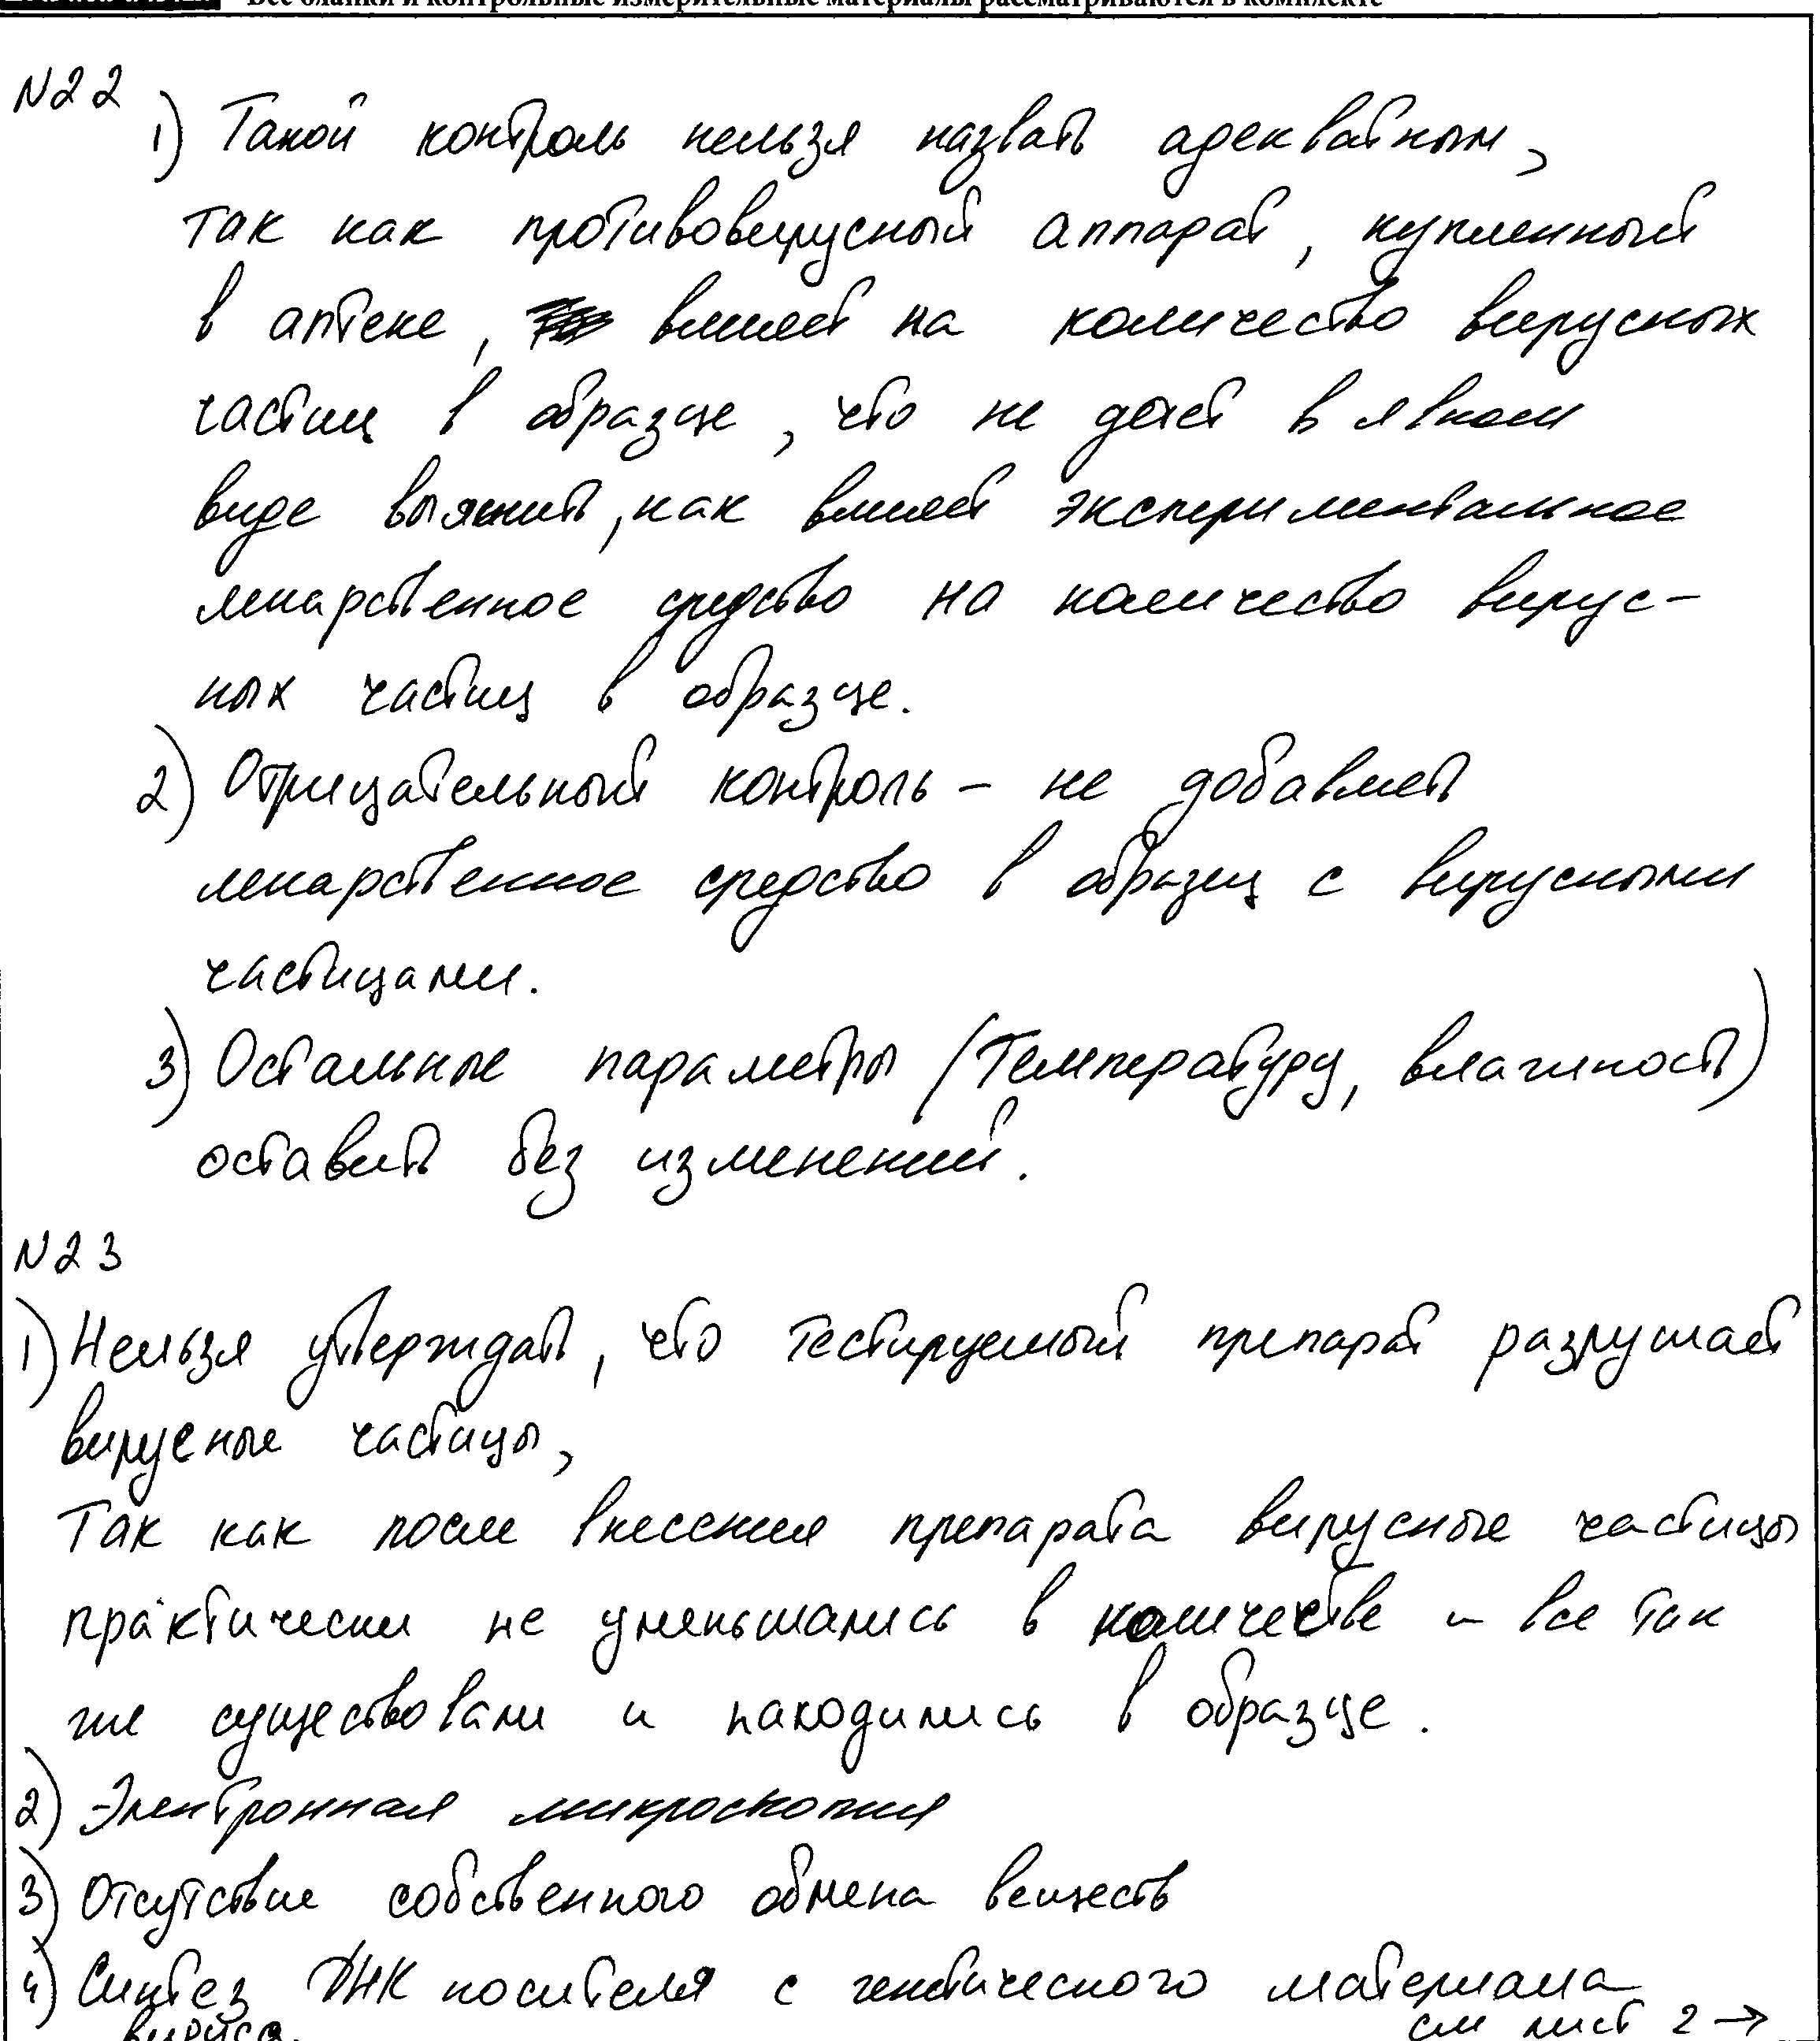 Все бланки и контрольные измерительные материалы рассматриваются в комплекте
N22
1) Такой контроль нельзя назвать адекватным,
так как противовирусный аппарат, купленный
в аптеке, влияет на количество вирусных
частиц в образце, что не даст в явном
виде выяснить, как влияет экспериментальное
лекарственное средство на количество вирус-
ных частиц в образце.
2) Отрицательный контроль - не добавлять
лекарственное средство в образец с вирусными
частицами.
3) Остальные параметры (температуру, влажность)
оставить без изменений.
N23
1) Нельзя утверждать, что тестируемый препарат разрушает
вирусные частицы,
Так как после внесения препарата вирусные частицы
практически не уменьшались в количестве - все так
же существовали и находились в образце.
2) Электронная микроскопия
3) Отсутствие собственного обмена веществ
4) Синтез ДНК носителя с генетического материала
вируса.
см лист 2 →